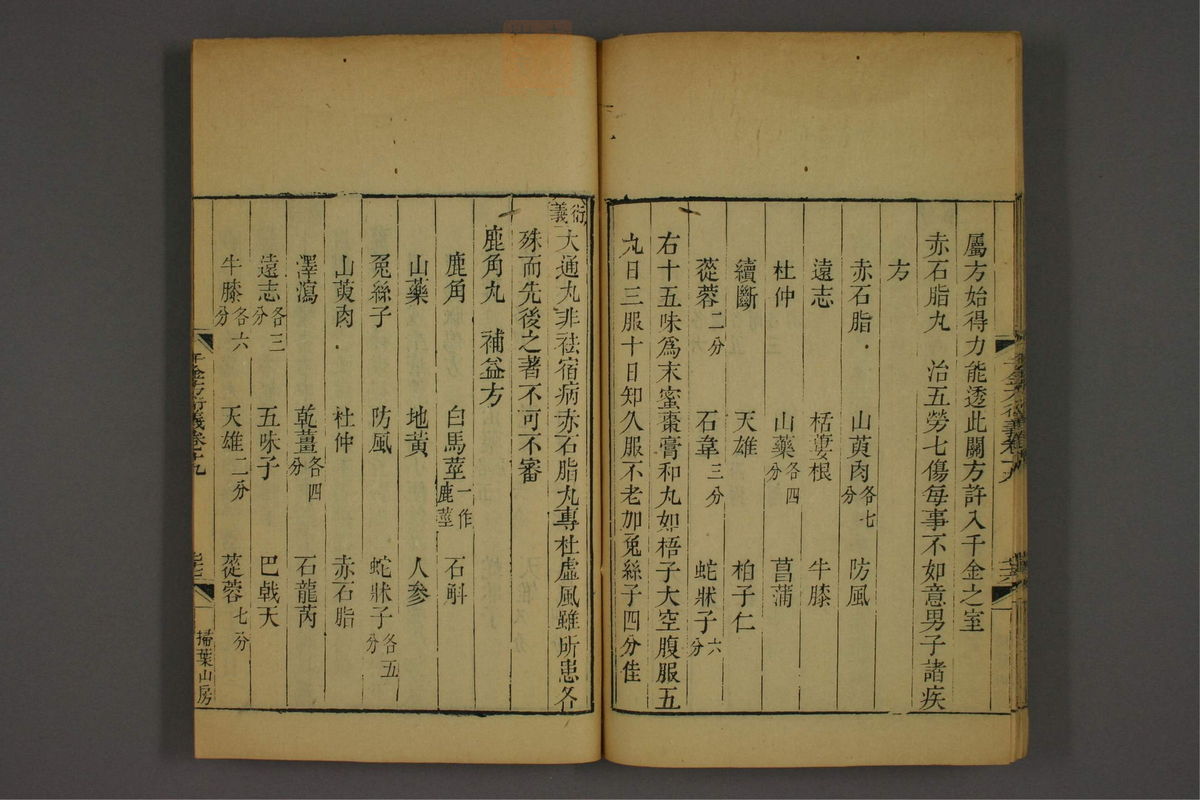 屬方始得力能透此關方許入千金之室
赤石脂丸　治五勞七傷每事不如意男子諸疾
方
赤石脂　山萸肉各七分　防風
遠志　栝蔞根　牛膝
杜仲　山藥各四分　菖蒲
續斷　天雄　柏子仁
蓯蓉二分　石韋三分　蛇牀子六分
右十五味爲末蜜棗膏和丸如梧子大空腹服五
丸日三服十日知久服不老加兔絲子四分佳
衍義大通丸非祛宿病赤石脂丸專杜虛風雖所患各
殊而先後之著不可不審
鹿角丸　補益方
鹿角　白馬莖一作鹿莖　石斛
山藥　地黃　人參
兔絲子　防風　蛇牀子各五分
山萸肉　杜仲　赤石脂
澤瀉　乾薑各四分　石龍芮
遠志各三分　五味子　巴戟天
牛膝各六分　天雄二分　蓯蓉七分
千金方衍義卷十九
掃葉山房